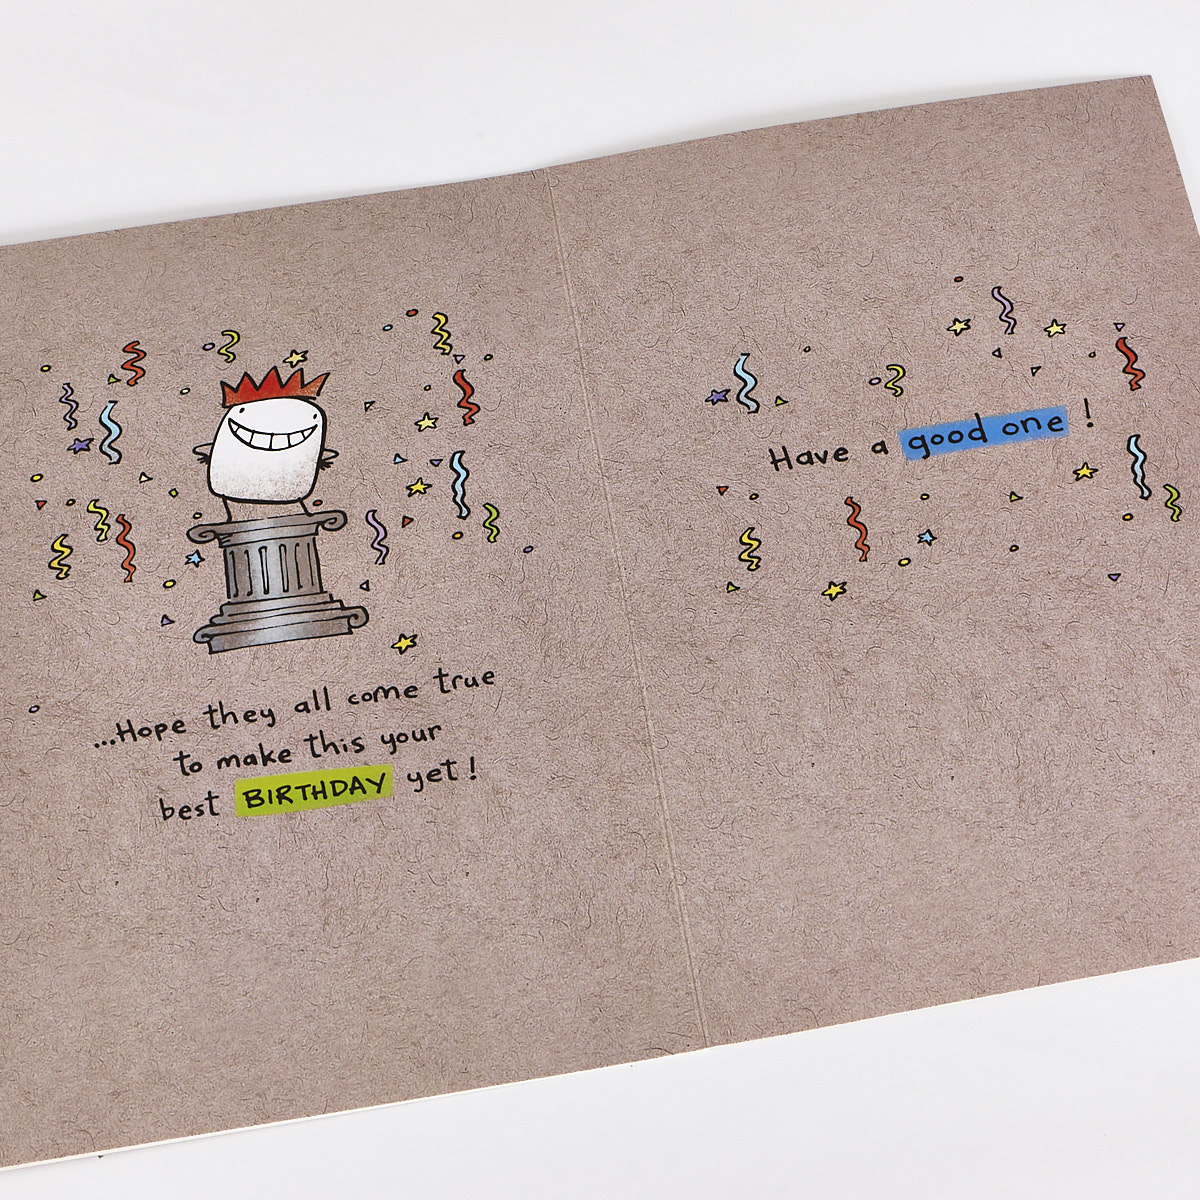 ...Hope they all come true
to make this your
best BIRTHDAY yet!
Have a good one!